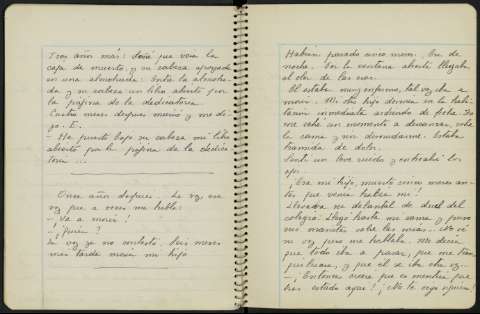 Tres años más: Soñé que veía la
caja de muerto, y su cabeza apoyada
en una almohada. Entre la almoha-
da y su cabeza un libro abierto por
la página de la dedicatoria.
Cuatro meses después murió y me di-
jo
- He puesto bajo su cabeza mi libro
abierto por la página de la dedica-
toria ...
Once años después. - La voz, esa
voz que a veces me habla:
- Va a morir!
- ¿Quién?
La voz ya no contestó. Seis meses
más tarde moría mi hijo
Habían pasado cinco meses. Era de
noche. Por la ventana abierta llegaba
el olor de las
Él estaba muy enfermo, tal vez iba a
morir. Mi otro hijo dormía en la habi-
tación inmediata ardiendo de fiebre. Yo
me eché un momento a descansar, sobre
la cama y sin desnudarme. Estaba
transida de dolor.
Sentí un leve ruido y entreabrí los
ojos.
¡Era mi hijo, muerto cinco meses an-
tes que venía hacia mí!
Llevaba su delantal de dril del
colegio. Llegó hasta mi cama y puso
sus manitas sobre las mías. No oí
su voz pero me hablaba. Me decía
que todo iba a pasar, que me tran-
quilizara, y que él se iba otra vez.
- ¡Entonces creeré que es mentira que
has estado aquí! ¡No te vayas